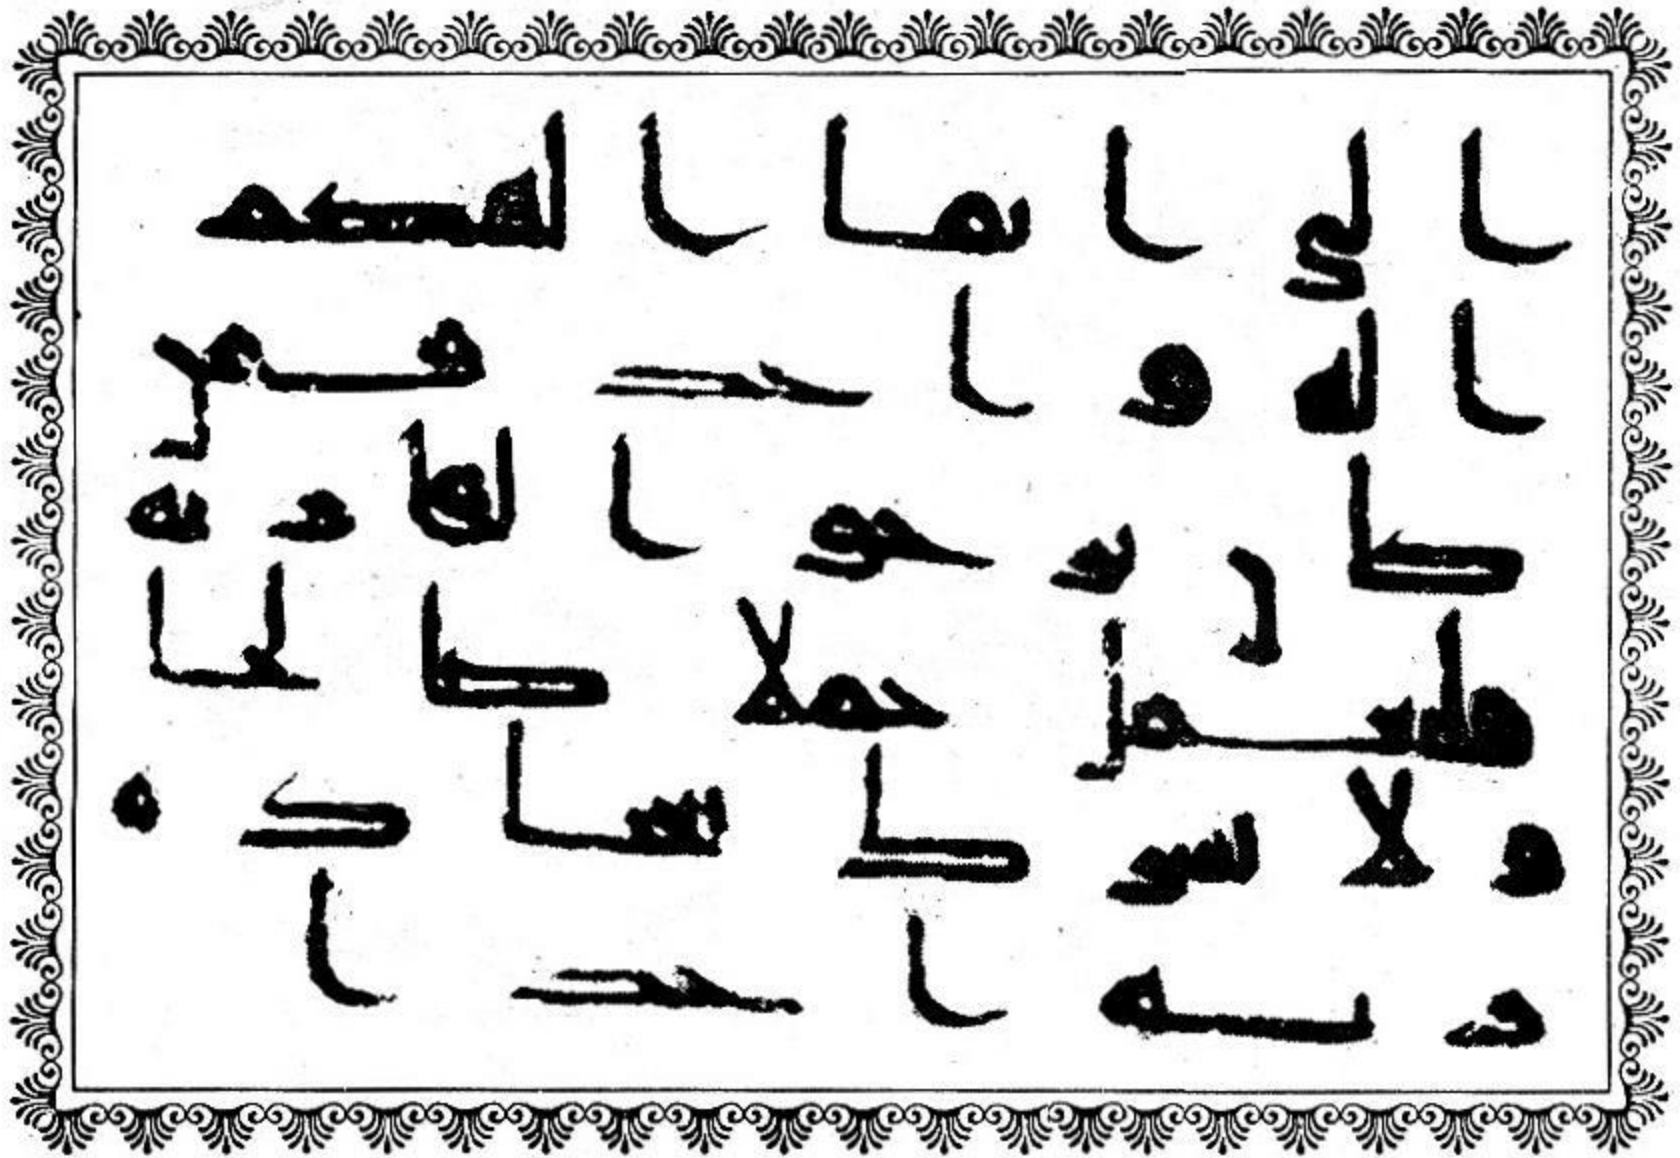 الى انما الهكم
اله واحد فمن
كان يرجوا لقا ربه
فليعمل عملا صالحا
ولا يشرك بعباده
ربه احدا